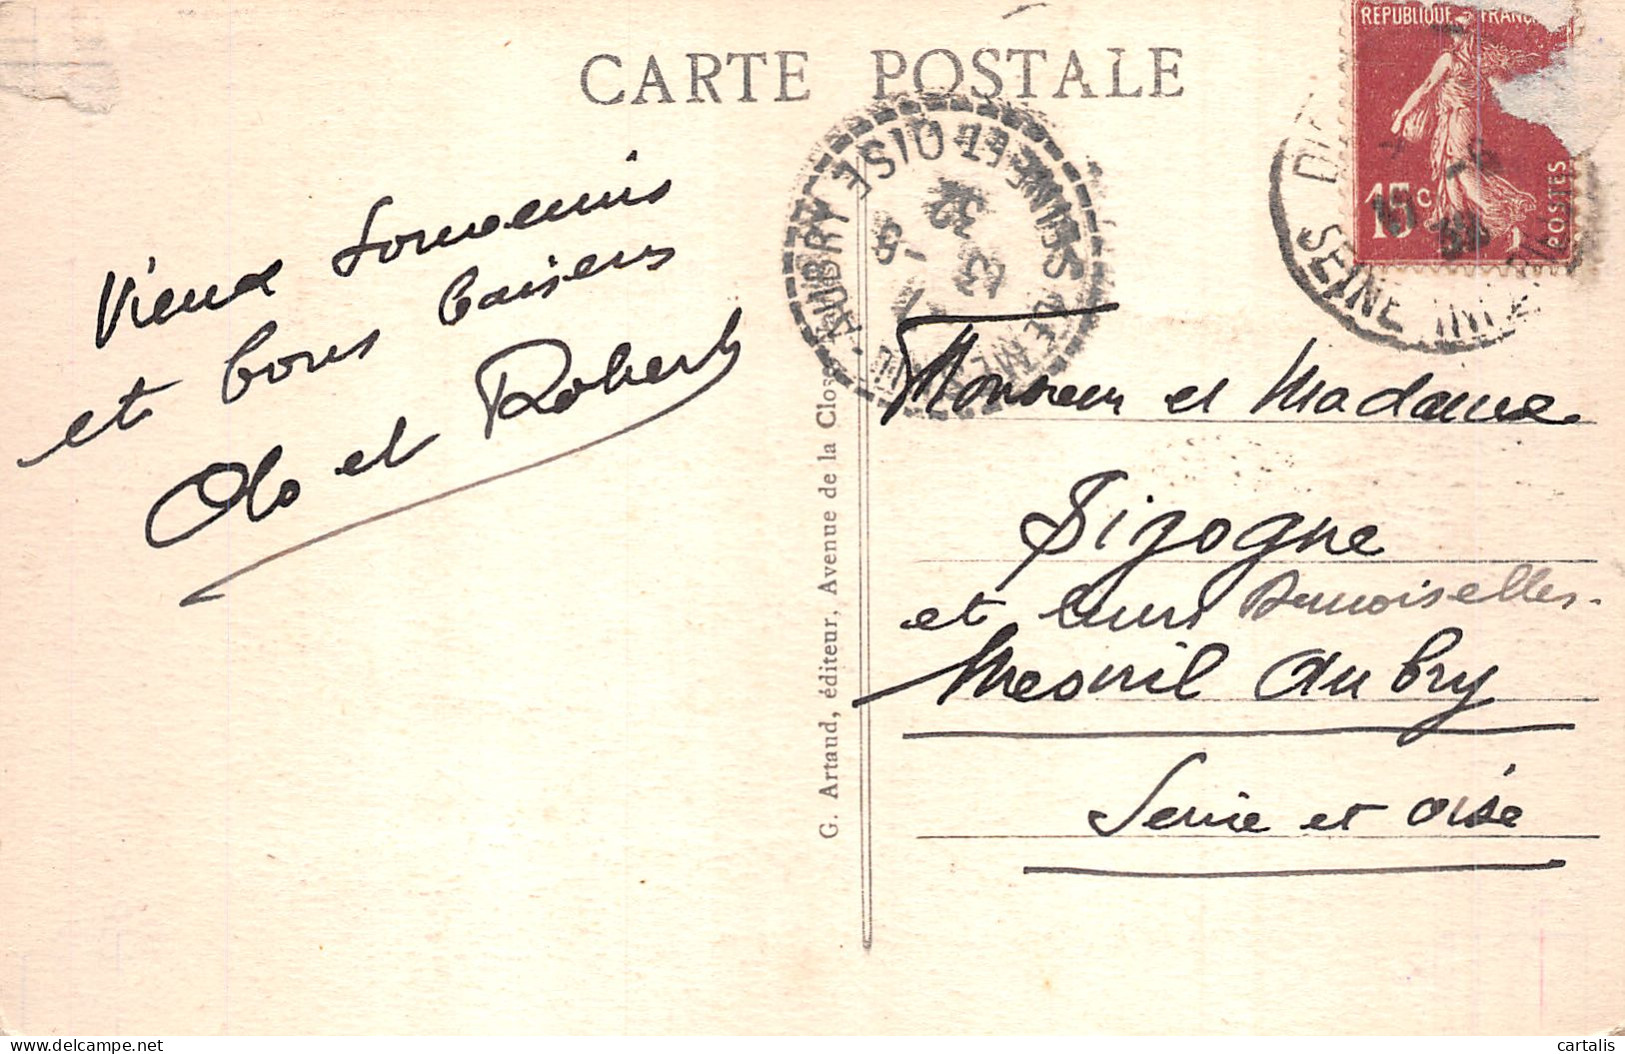 CARTE POSTALE
REPUBLIQUE FRANC
15c
POSTES
SEINE INF
AUBRY SEINE-ET-OISE
13
7-8
32
Vieux Souvenirs
et bons baisers
Olo et Robert
G. Artaud, éditeur, Avenue de la Close
Monsieur et Madame
Sizogne
et leurs Demoiselles.
Mesnil Aubry
Seine et oise
cartalis